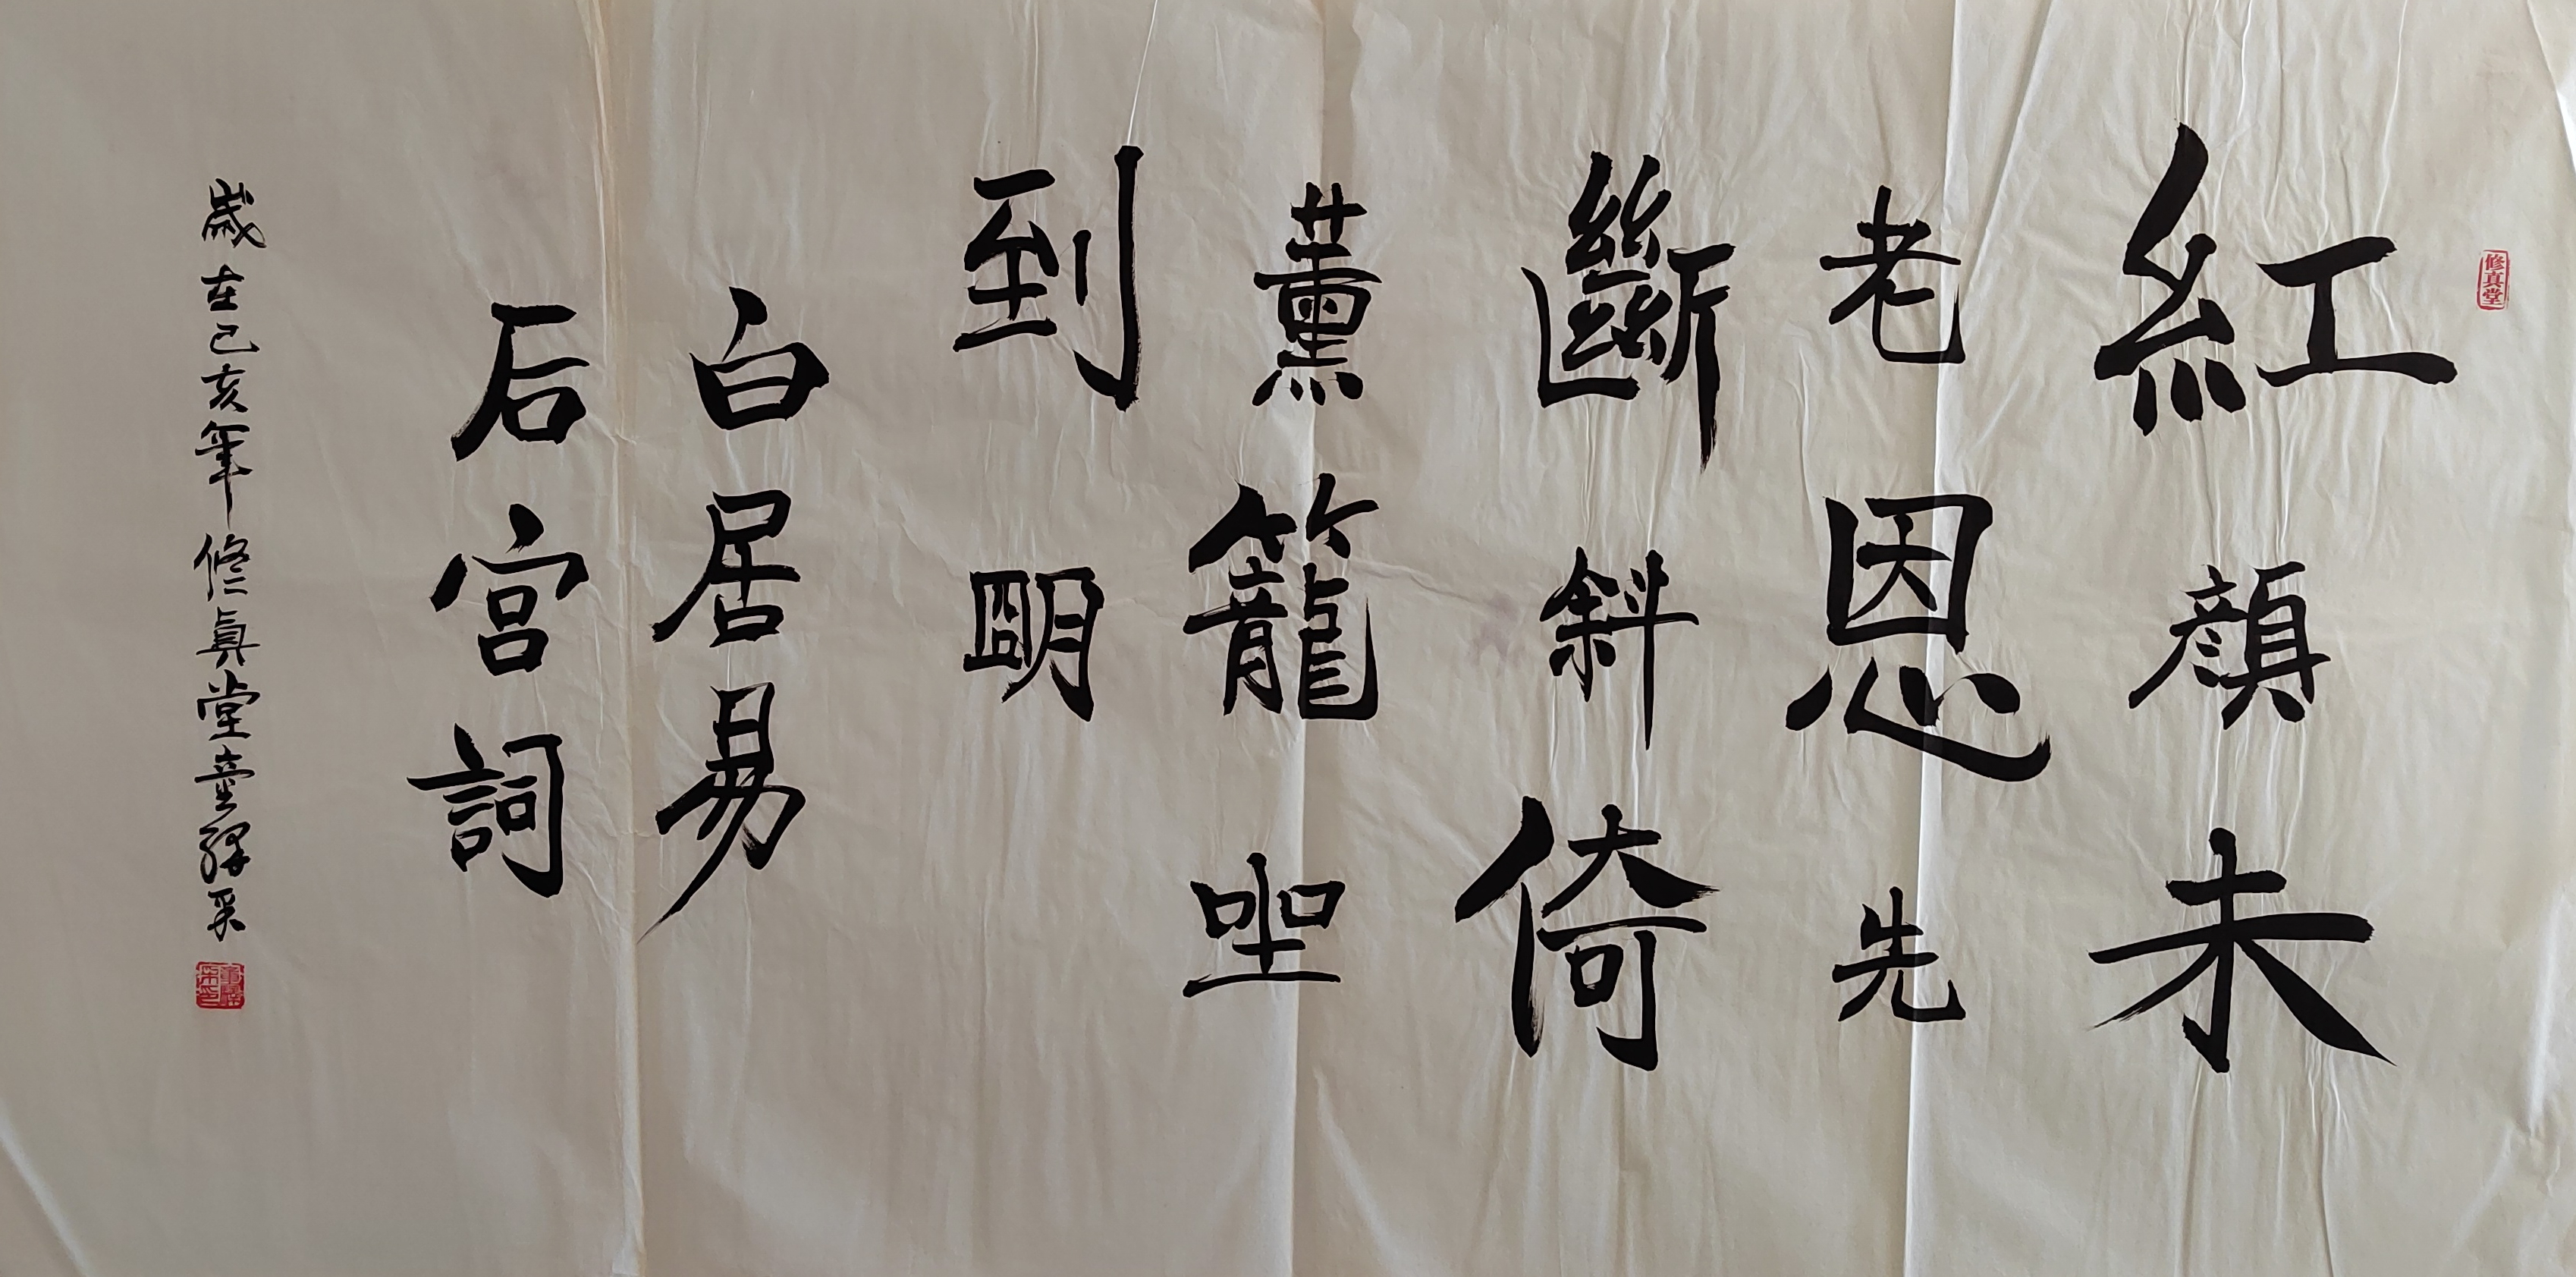 修真堂
紅顏未
老恩先
斷斜倚
薰籠坐
到明
白居易
后宫詞
歲在己亥年修真堂童釋采